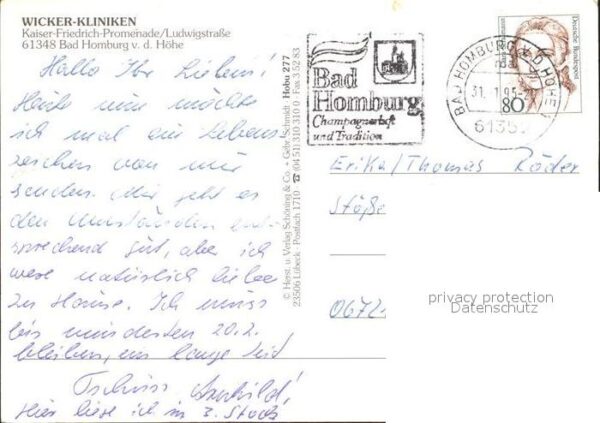 WICKER-KLINIKEN
Kaiser-Friedrich-Promenade/Ludwigstraße
61348 Bad Homburg v. d. Höhe
Hallo Ihr Lieben!
Heute nun möchte
ich mal ein Lebens-
zeichen von mir
senden. Mir geht es
den Umständen ent-
sprechend gut, aber ich
wäre natürlich lieber
zu Hause. Ich muss
bis mindesten 20.2.
bleiben, ein lange Zeit
Tschüss
Hier liege ich im 3. Stock
© Herst. u. Verlag Schöning & Co. + Gebr. Schmidt · Hobu 277
23506 Lübeck · Postfach 1710 · ☎ (04 51) 310 310 · Fax 3 52 83
Bad
Homburg
Champagnerluft
und Tradition
BAD HOMBURG V.D. HÖHE 1
31. 1.95-
6135
Deutsche Bundespost
80
Erika/Thomas Röder
Stöße
0672
privacy protection
Datenschutz